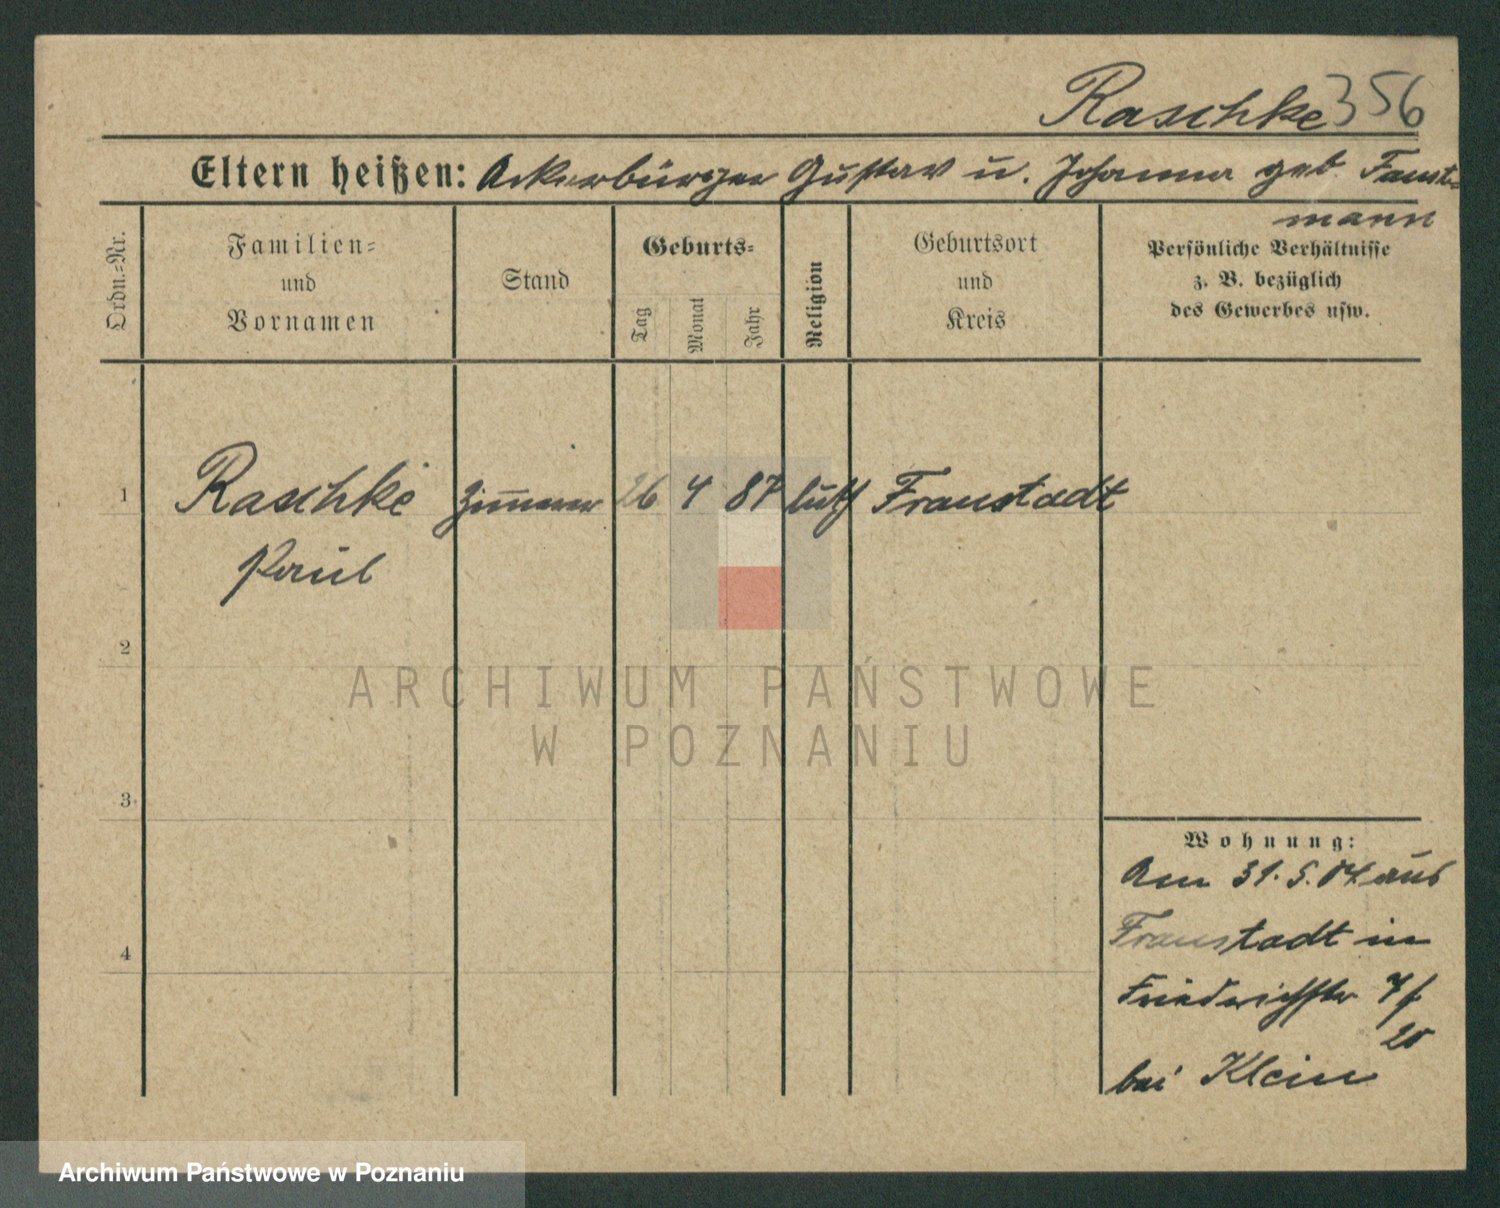 Raschke 356
Eltern heißen: Ackerbürger Gustav u. Johanna geb. Faust-
mann
Ordn.-Nr.
Familien-
und
Vornamen
Stand
Geburts-
Tag
Monat
Jahr
Religion
Geburtsort
und
Kreis
Persönliche Verhältnisse
z. B. bezüglich
des Gewerbes usw.
1 Raschke Zimmerer 26 4 87 luth Fraustadt
Paul
2
3
4
Wohnung:
Am 31. 5. 04 aus
Fraustadt in
Friedrichstr 7/
20
bei Klein
ARCHIWUM PAŃSTWOWE
W POZNANIU
Archiwum Państwowe w Poznaniu